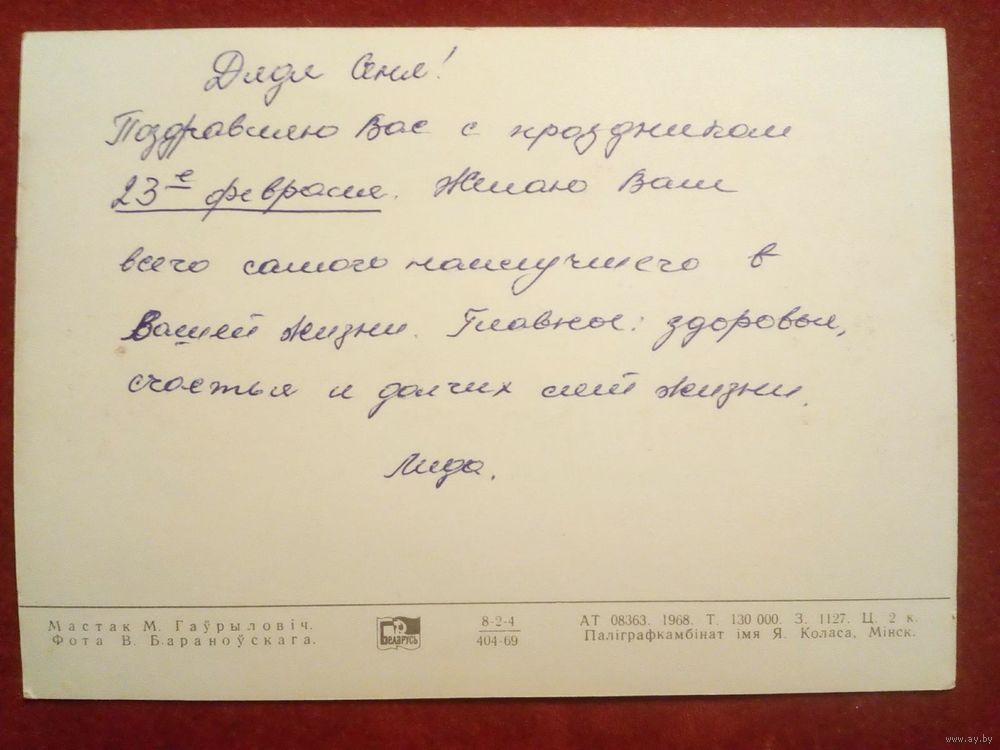 Дядя Сеня!
Поздравляю Вас с праздником
23е февраля. Желаю Вам
всего самого наилучшего в
Вашей жизни. Главное: здоровья,
счастья и долгих лет жизни.
Лида.
Мастак М. Гаўрыловіч.
Фота В. Бараноўскага.
БЕЛАРУСЬ
8-2-4
404-69
АТ 08363. 1968. Т. 130 000. З. 1127. Ц. 2 к.
Паліграфкамбінат імя Я. Коласа, Мінск.
www.ay.by